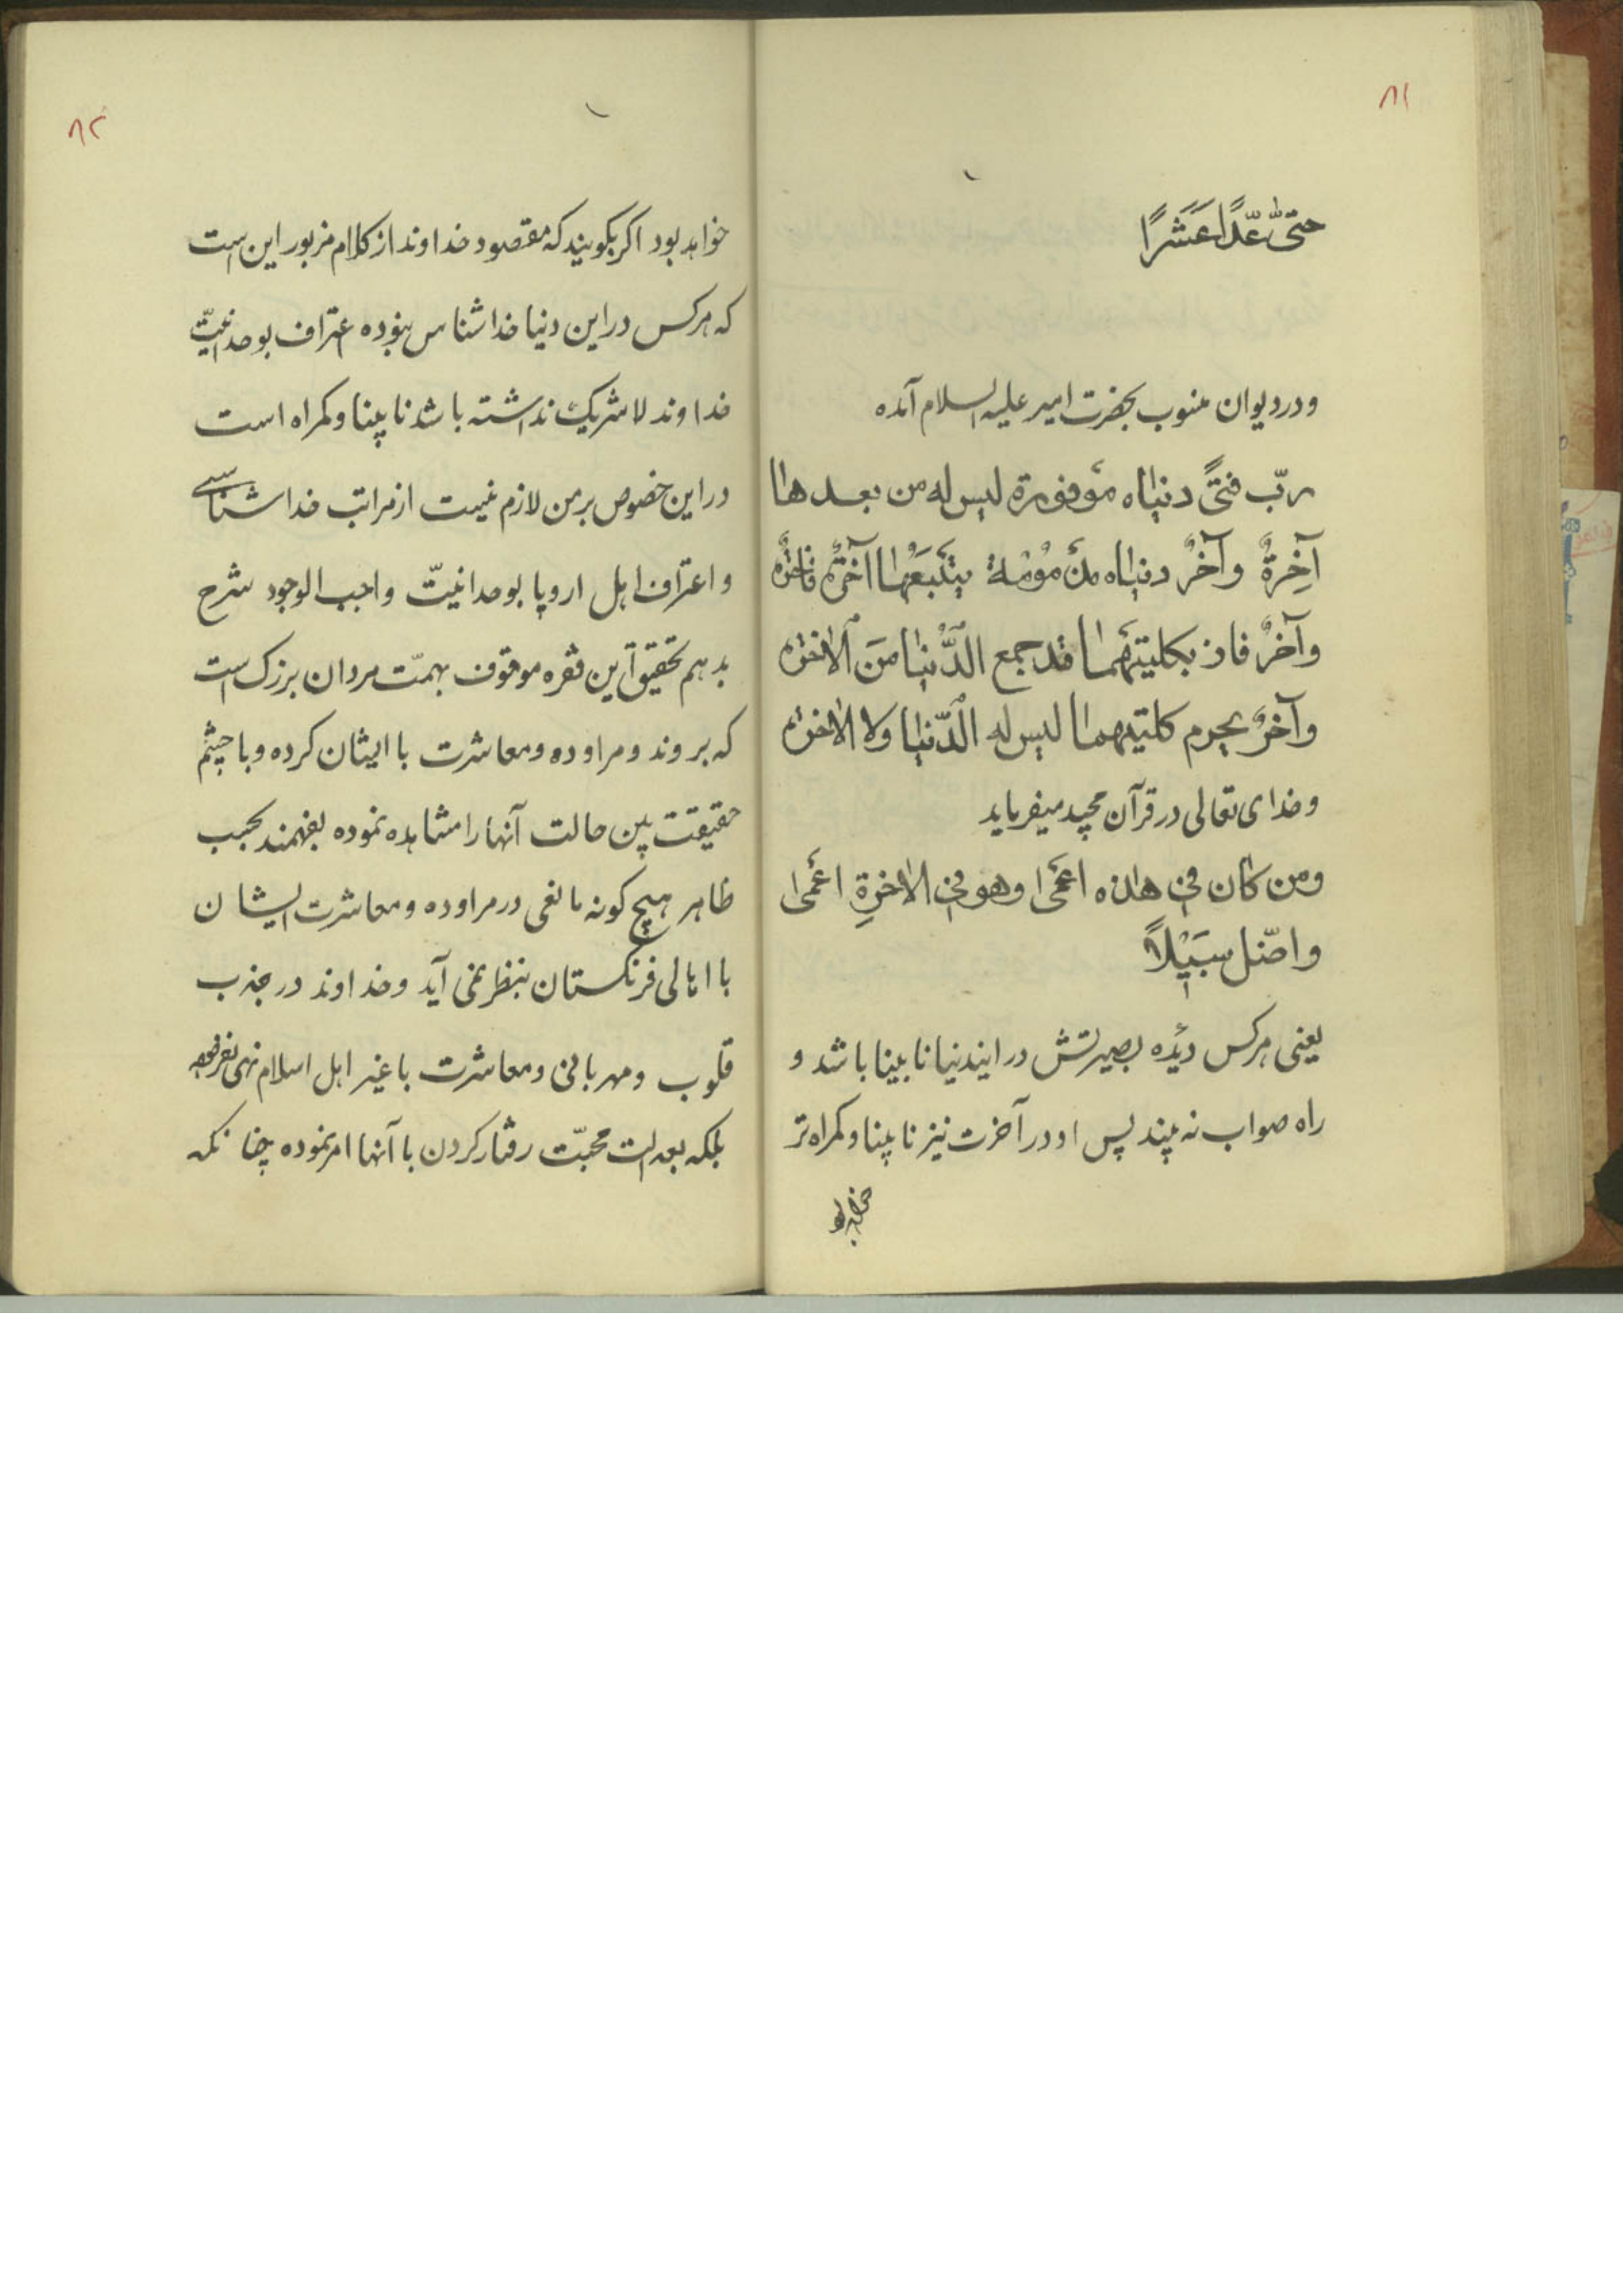 ۸۱
حتّی عدّا عشرًا
و در دیوان منسوب بحضرت امیر علیه السلام آمده
ربّ فتیً دنیاه موفورة لیس له من بعدها
آخِرةٌ وآخرٌ دنیاه یتبعها آخرة فاخرة
وآخرٌ فاز بکلیتهما قد جمع الدّنیا مَن الاخرة
وآخرٌ یحرم کلتیهما لیس له الدّنیا ولا الاخرة
و خدای تعالی در قرآن مجید میفرماید
ومن کان فی هذه اعمی وهو فی الاخرةِ اعمی
واضّل سبیلاً
یعنی هرکس دیدهٔ بصیرتش در ایندنیا نابینا باشد و
راه صواب نه بیند پس او در آخرت نیز نابینا و کمراه تر
خواهد بود
۸۲
خواهد بود اکر بکویند که مقصود خداوند از کلام مزبور این است
که هرکس در این دنیا خداشناس نبوده اعتراف بوحدانیّت
خداوند لاشریک نداشته باشد نابینا و کمراه است
در این خصوص بر من لازم نیست از مراتب خداشناسی
و اعتراف اهل اروپا بوحدانیّت واجب الوجود شرح
بدهم تحقیق این فقره موقوف بهمّت مردان بزرک است
که بروند و مراوده و معاشرت با ایشان کرده و با چشم
حقیقت بین حالت آنها را مشاهده نموده بفهمند بحسب
ظاهر هیچ کونه مانعی در مراوده و معاشرت ایشان
با اهالی فرنکستان بنظر نمی آید و خداوند در جذب
قلوب و مهربانی و معاشرت با غیر اهل اسلام نهی نفرموده
بلکه بعدالت محبّت رفتار کردن با آنها امر نموده چنانکه